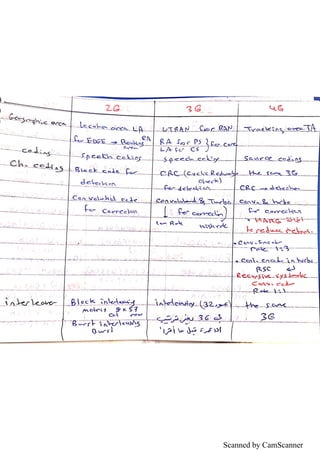 2G 3G 4G
Geographic area Location area LA UTRAN for RAN Tracking area TA
for EDGE → Routing area RA RA for PS } for core
LA for CS
coding speech coding speech coding source coding
Ch. coding Block code for CRC (Cyclic Redundancy check) the same 3G
detection for detection CRC → detection
Convolutional code convolutional & Turbo conv. & turbo
for correction for correction for correction
low Rate high rate
to reduce
• Conv. Encoder
rate 1:3
• encoder in turbo
RSC
Recursive systematic
Conv. code
Rate 1:1
interleave Block interleaving interleaving (32) the same
8 × 57 3G
Burst interleaving
Burst
Scanned by CamScanner